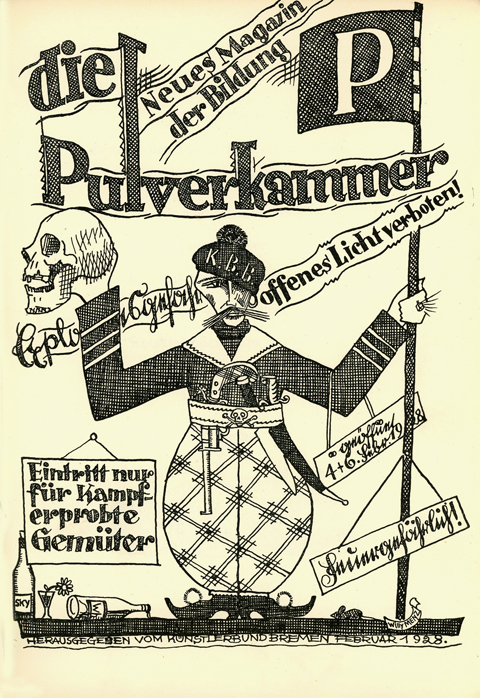 die
Neues Magazin
der Bildung
P
Pulverkammer
KBB
offenes Licht verboten!
Explosionsgefahr
geöffnet
4+6. Febr. 1928
Eintritt nur
für Kampf-
erprobte
Gemüter
Feuergefährlich!
SKY
HERAUSGEGEBEN VOM KÜNSTLERBUND BREMEN FEBRUAR 1928.